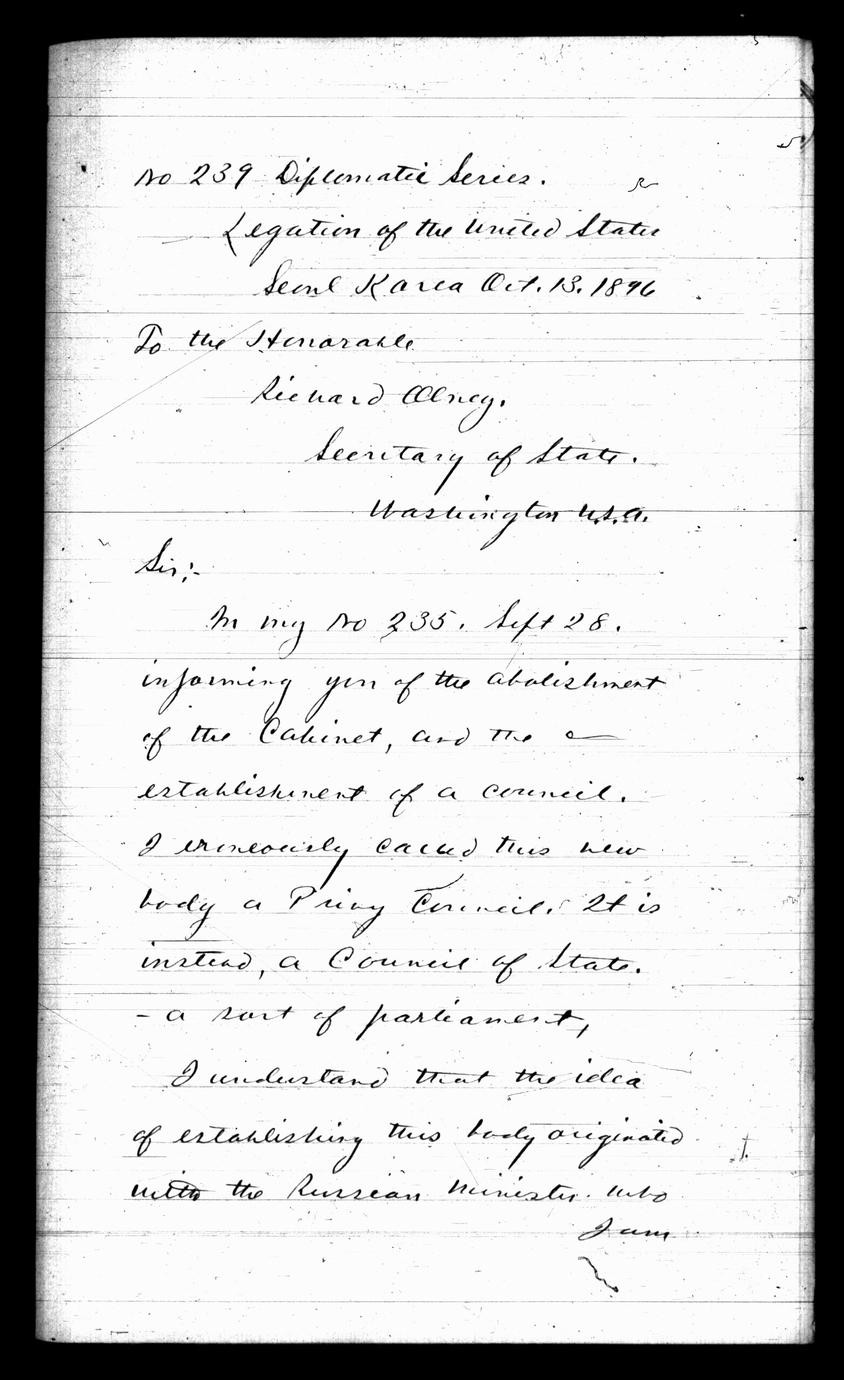 No 239 Diplomatic Series.
Legation of the United States
Seoul Korea Oct. 13. 1896
To the Honorable
Richard Olney.
Secretary of State.
Washington U.S.A.
Sir;-
In my No 235. Sept 28.
informing you of the abolishment
of the Cabinet, and the
establishment of a council.
I erroneously called this new
body a Privy Council. It is
instead, a Council of State.
- a sort of parliament,
I understand that the idea
of establishing this body originated
with the Russian Minister. who
I am